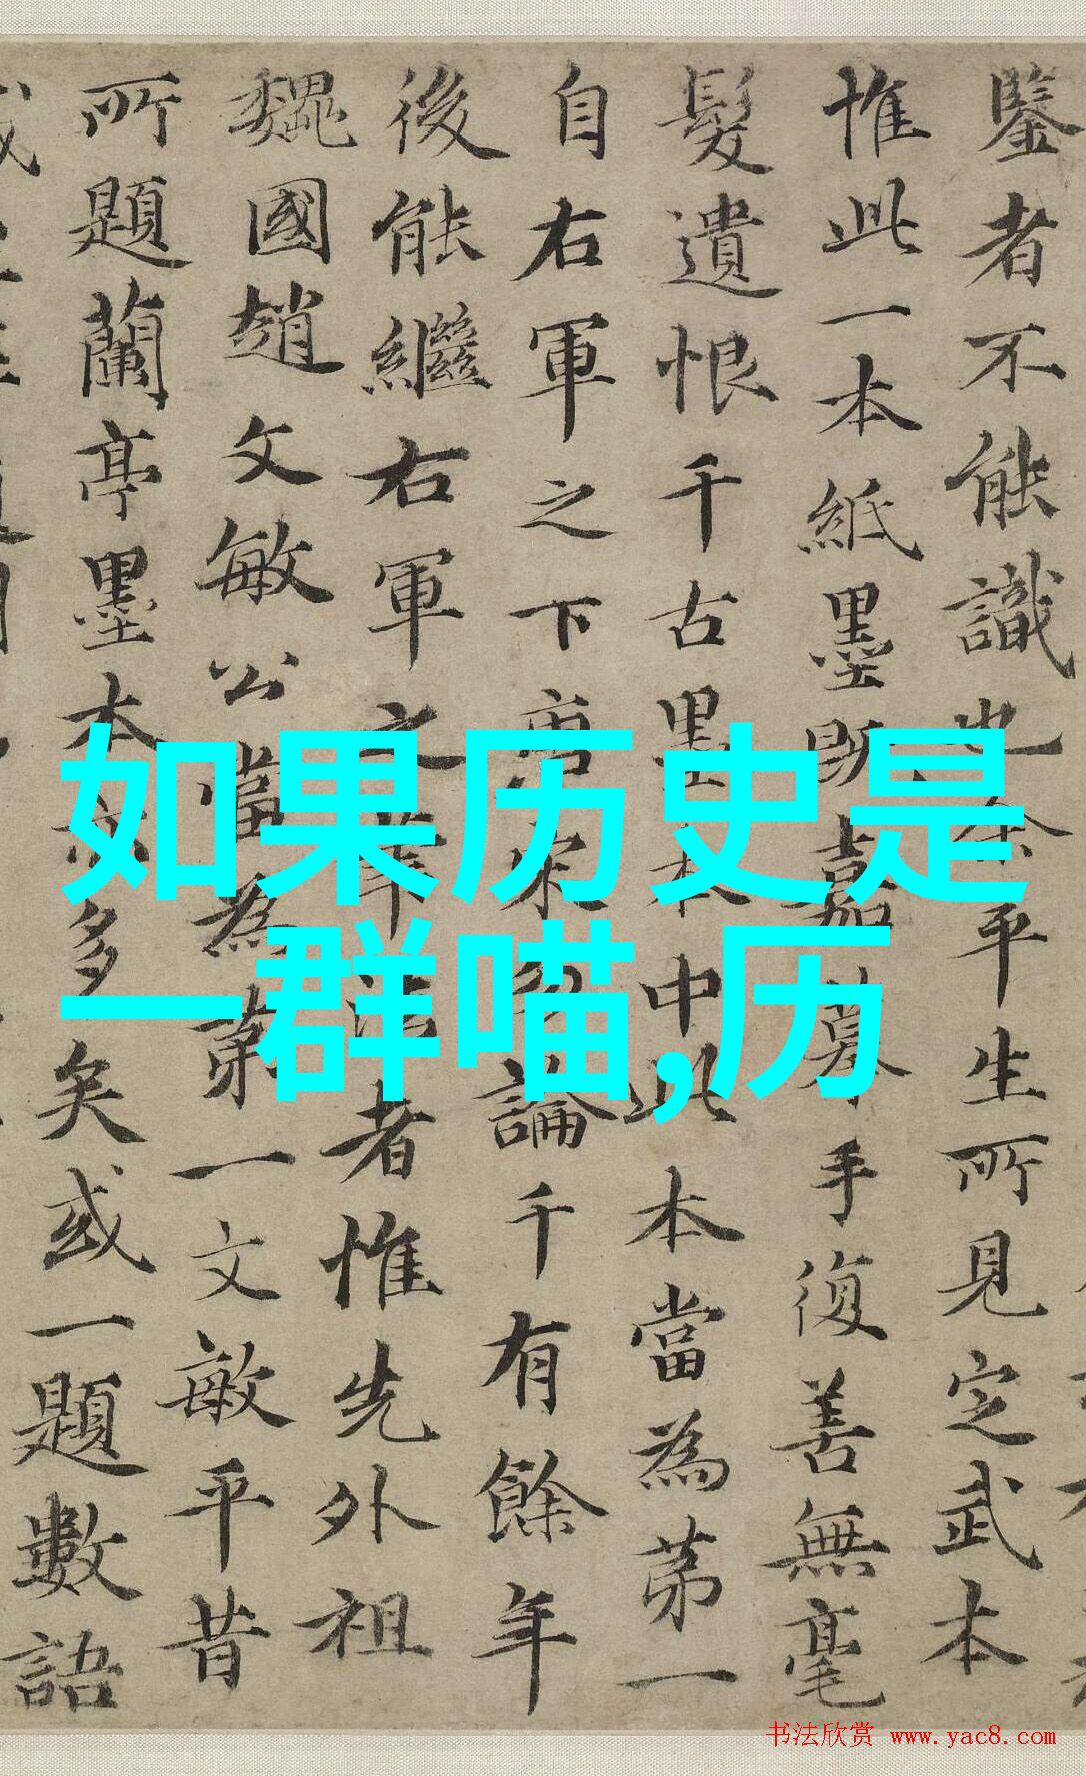 鑒者不能識也余平生所見定武本
惟此一本紙墨既嘉摹手復善無毫
髮遺恨千古墨本中此本當為第一
自右軍之下唐宋勿論千有餘年
後能繼右軍之筆法者惟先外祖
魏國趙文敏公當為第一文敏平昔
所題蘭亭墨本亦多矣或一題數語
如果历史是
一群喵,历
书法欣赏 www.yac8.com